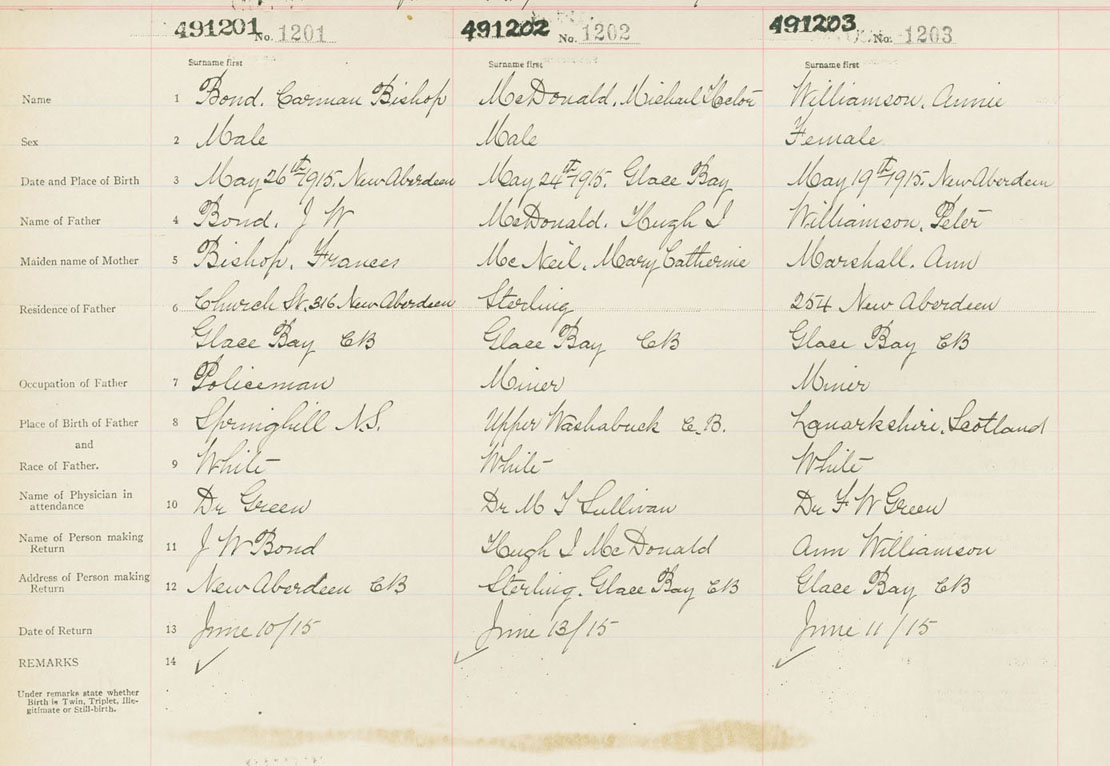 491201 No. 1201 491202 No. 1202 491203 No. 1203
Surname first Surname first Surname first
Name 1 Bond. Carman Bishop McDonald. Michael Hector Williamson. Annie
Sex 2 Male Male Female
Date and Place of Birth 3 May 26th 1915. New Aberdeen May 24th 1915. Glace Bay May 19th 1915. New Aberdeen
Name of Father 4 Bond. J W McDonald. Hugh J Williamson. Peter
Maiden name of Mother 5 Bishop. Frances Mc Neil. Mary Catherine Marshall. Ann
Residence of Father 6 Church St. 316 New Aberdeen Sterling 254 New Aberdeen
Glace Bay CB Glace Bay CB Glace Bay CB
Occupation of Father 7 Policeman Miner Miner
Place of Birth of Father 8 Springhill N.S. Upper Washabuck C.B. Lanarkshire. Scotland
and
Race of Father. 9 White White White
Name of Physician in attendance 10 Dr Green Dr M T Sullivan Dr F W Green
Name of Person making Return 11 J W Bond Hugh J McDonald Ann Williamson
Address of Person making Return 12 New Aberdeen CB Sterling. Glace Bay CB Glace Bay CB
Date of Return 13 June 10/15 June 13/15 June 11/15
REMARKS 14 ✓ ✓ ✓
Under remarks state whether
Birth is Twin, Triplet, Ille-
gitimate or Still-birth.